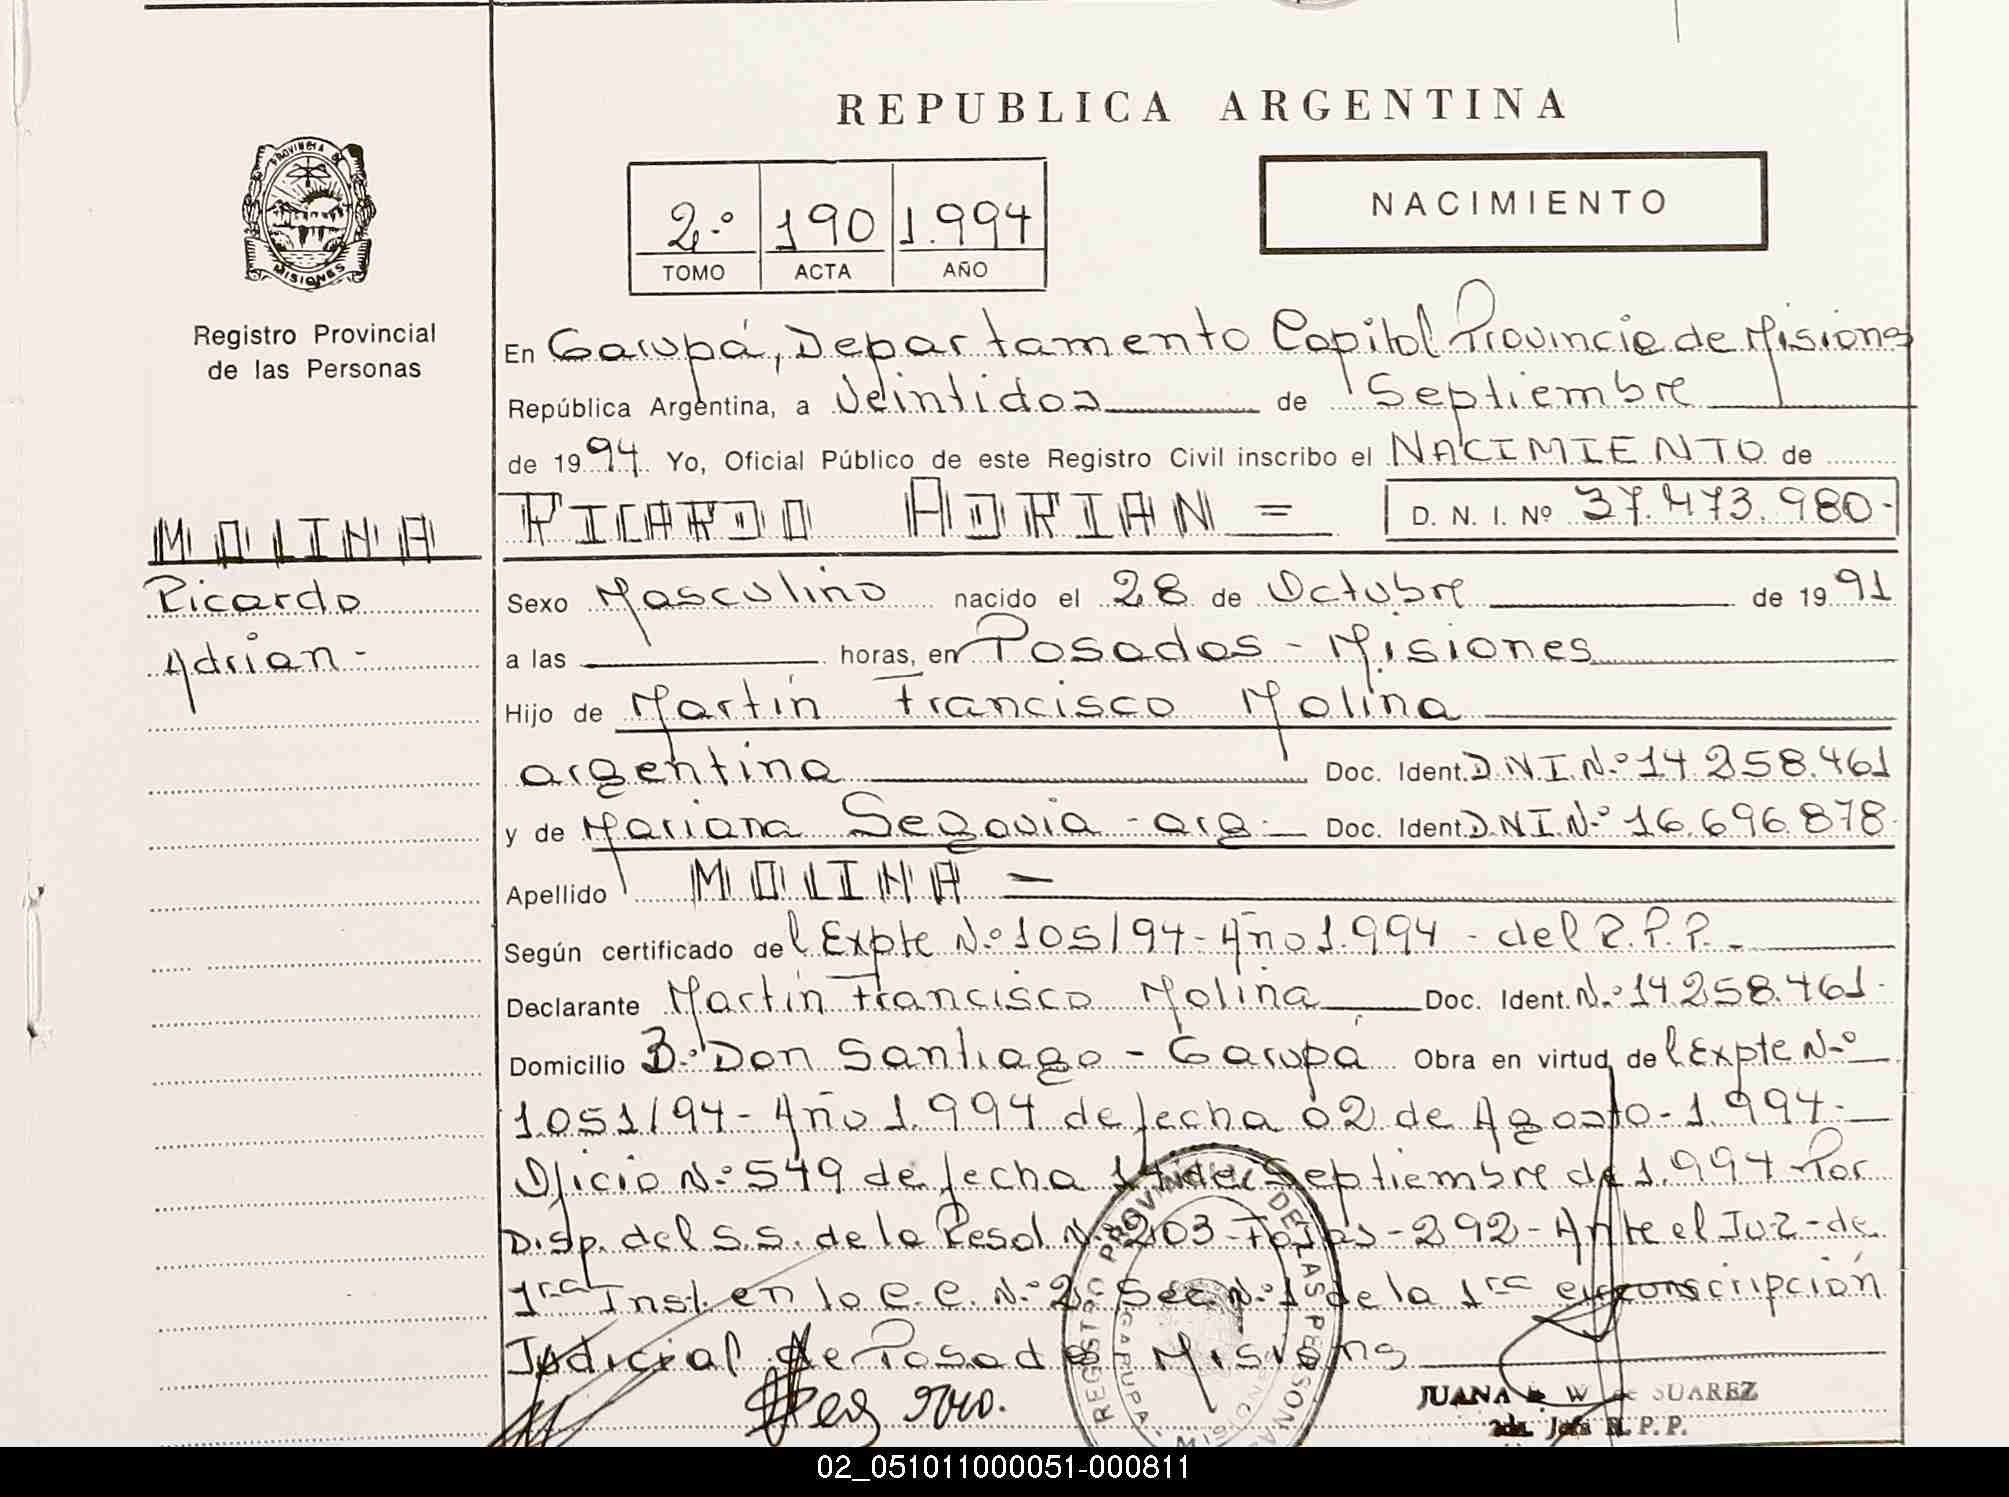 REPUBLICA ARGENTINA
PROVINCIA DE
MISIONES
Registro Provincial
de las Personas
2.º 190 1.994
TOMO ACTA AÑO
NACIMIENTO
En Garupá, Departamento Capital Provincia de Misiones
República Argentina, a Veintidos de Septiembre
de 1994. Yo, Oficial Público de este Registro Civil inscribo el NACIMIENTO de
MOLINA
Ricardo
Adrian-
RICARDO ADRIAN = D. N. I. Nº 37.473.980-
Sexo Masculino nacido el 28 de Octubre de 1991
a las horas, en Posadas - Misiones
Hijo de Martín Francisco Molina
argentina Doc. Ident. D.N.I.N.º 14.258.461
y de Mariana Segovia - arg. Doc. Ident. D.N.I.N.º 16.696.878-
Apellido MOLINA =
Según certificado del Expte N.º 105/94- Año 1.994 - del R.P.P.
Declarante Martín Francisco Molina Doc. Ident. N.º 14.258.461-
Domicilio B.º Don Santiago - Garupá Obra en virtud del Expte N.º
1051/94- Año 1.994 de fecha 02 de Agosto-1.994-
Oficio N.º 549 de fecha 14 de Septiembre de 1.994 Por
Disp. del S.S. de la Resol N.º 203- Fojas-292- Ante el Juz-de
1ra Inst. en lo C.C. N.º 2 Sec. N.º 1 de la 1ra circonscripción
Judicial de Posadas Misiones
REGISTRO PROVINCIAL DE LAS PERSONAS
GARUPA
JUANA W de SUAREZ
Jefa R.P.P.
02_051011000051-000811